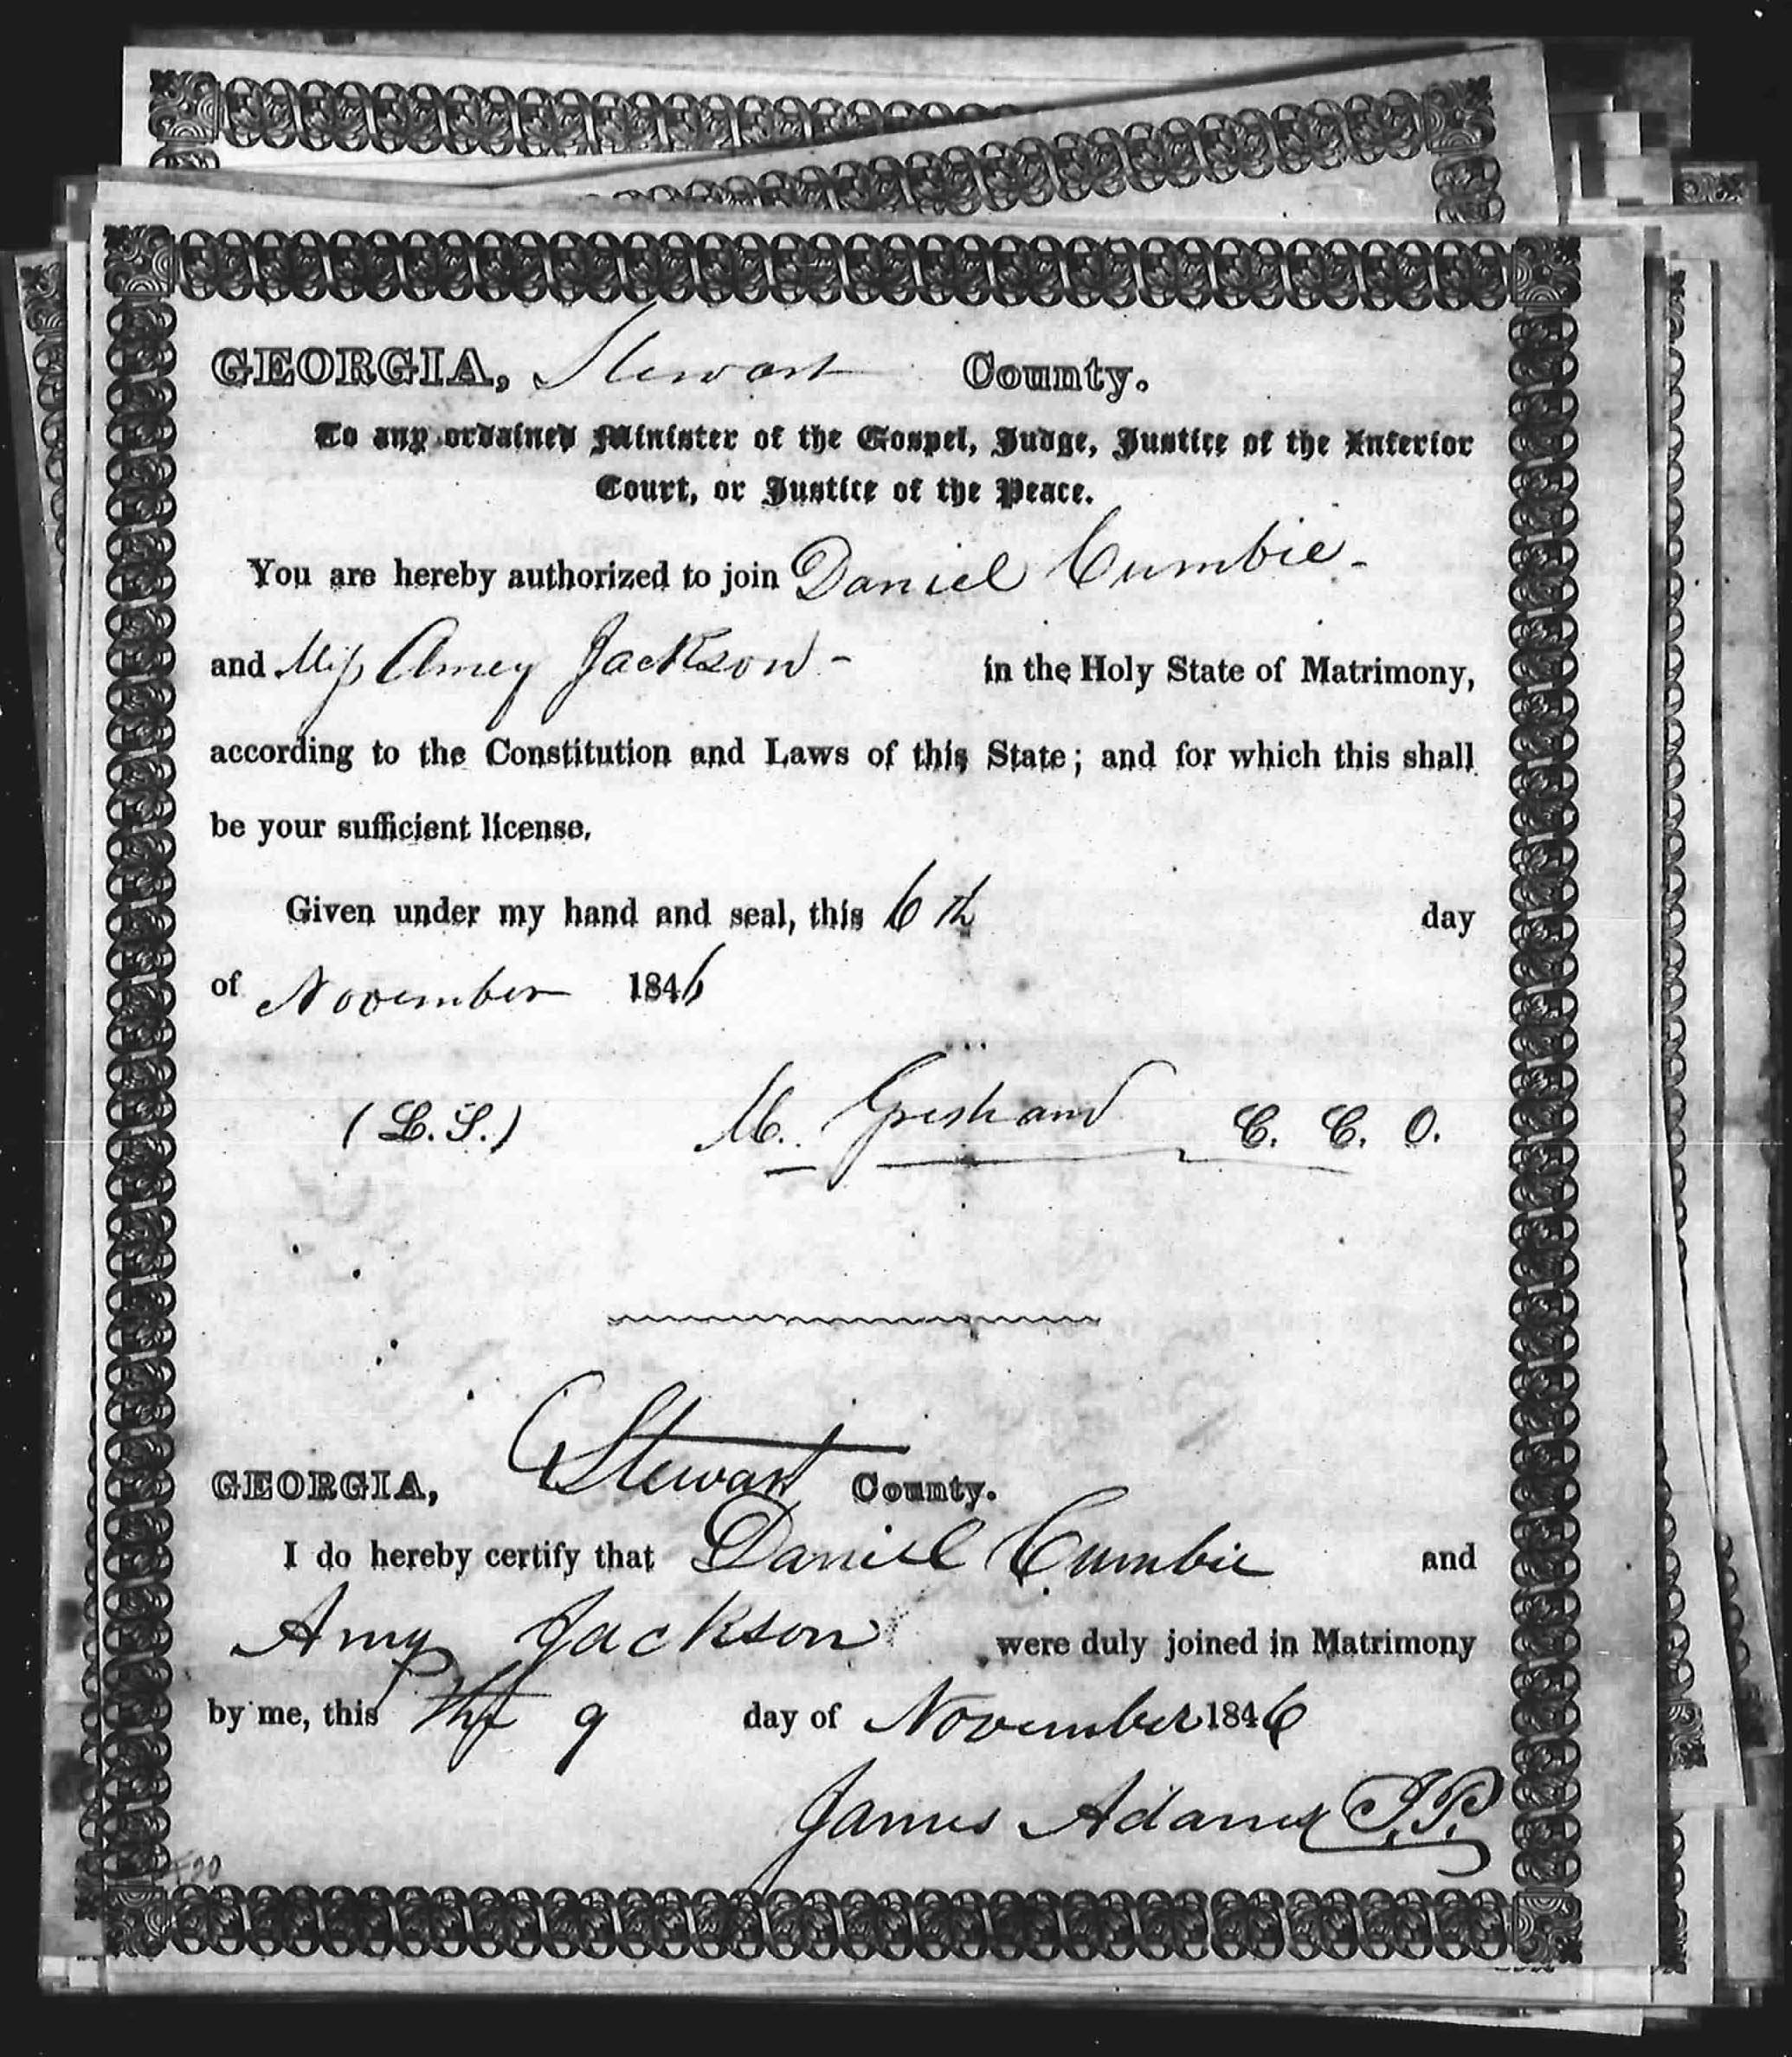 GEORGIA, Stewart County.
To any ordained Minister of the Gospel, Judge, Justice of the Inferior
Court, or Justice of the Peace.
You are hereby authorized to join Daniel Cumbie -
and Miss Amey Jackson - in the Holy State of Matrimony,
according to the Constitution and Laws of this State; and for which this shall
be your sufficient license.
Given under my hand and seal, this 6th day
of November 1846
(L.S.) M. Gresham C. C. O.
GEORGIA, Stewart County.
I do hereby certify that Daniel Cumbie and
Amy Jackson were duly joined in Matrimony
by me, this the 9 day of November 1846
James Adams J.P.